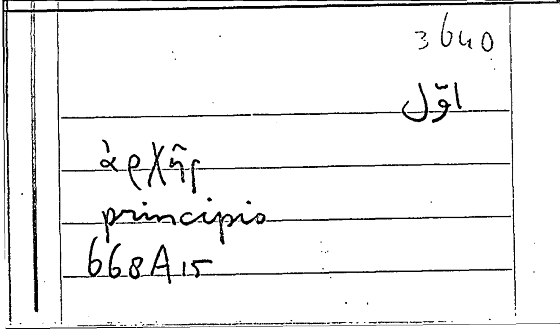 3640
اوّل
ἀρχῆς
principio
668A15